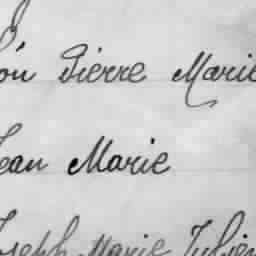 Pierre Marie
Jean Marie
Joseph Marie Julien